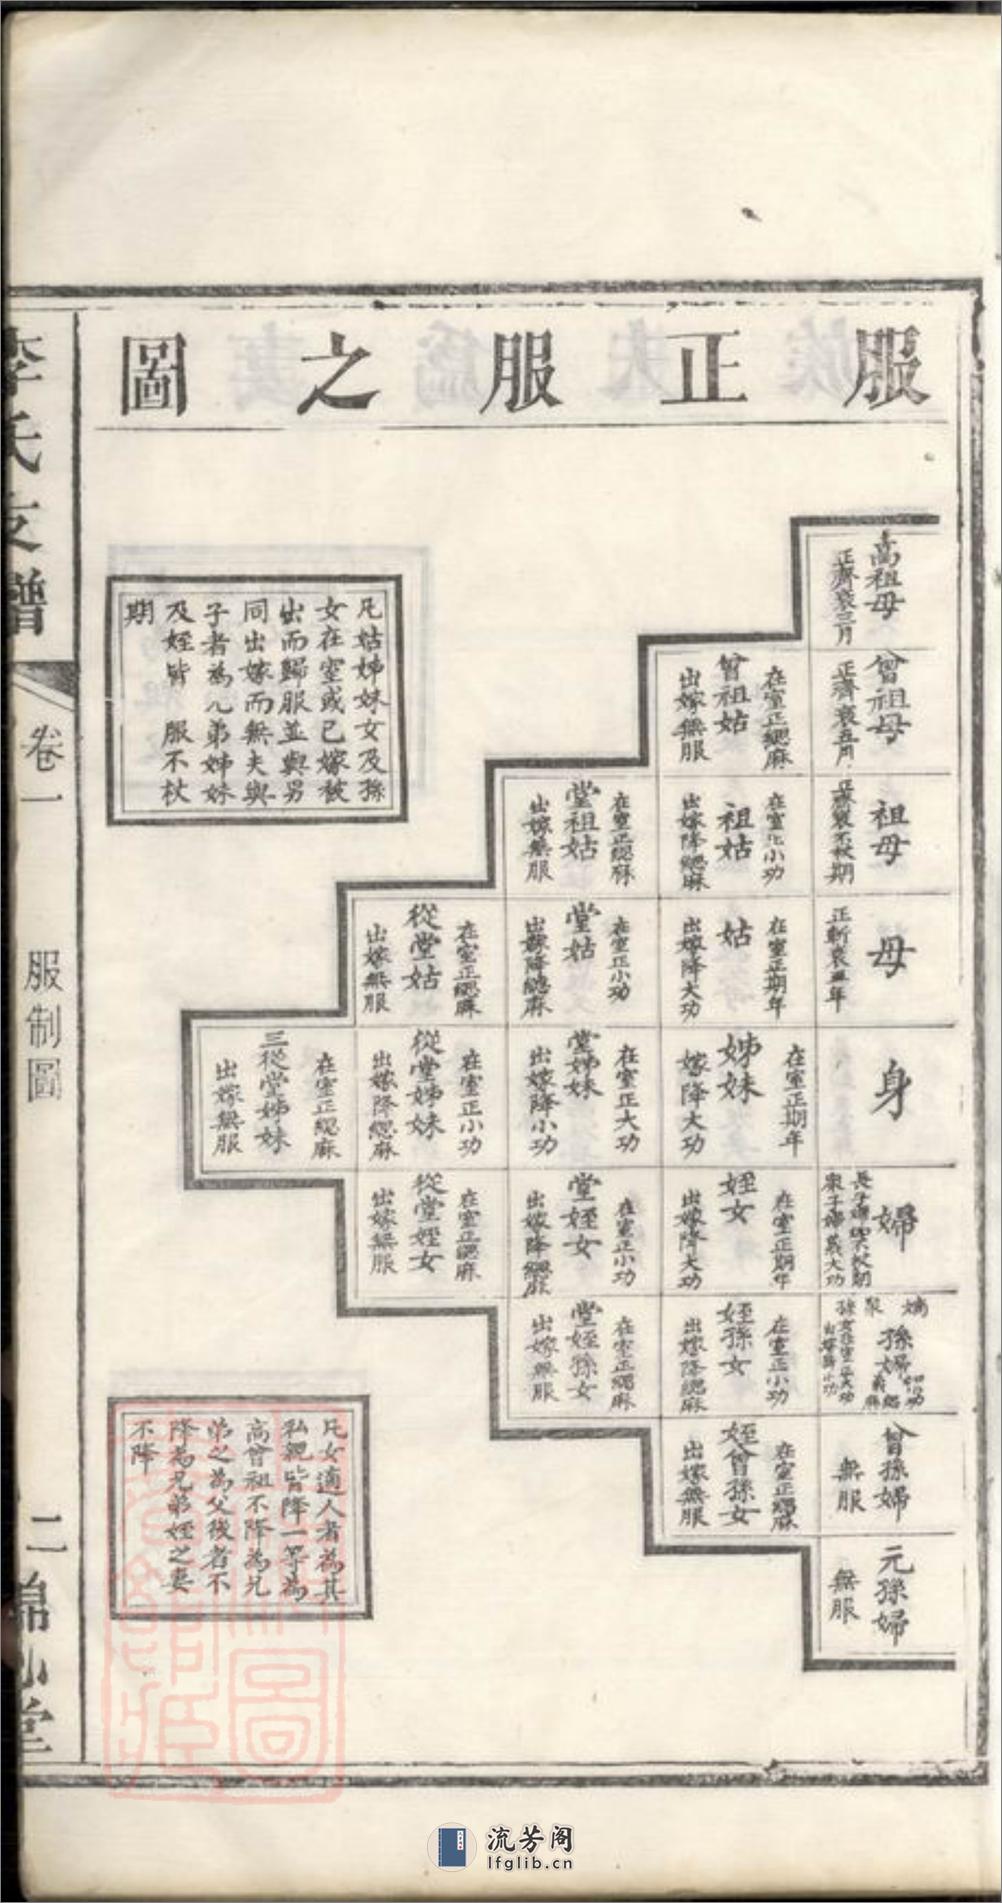 服正服之圖
高祖母
正齊衰三月
曾祖母
正齊衰五月
在室正緦麻
曾祖姑
出嫁無服
祖母
正齊衰不杖期
在室正小功
祖姑
出嫁降緦麻
在室正緦麻
堂祖姑
出嫁無服
母
正斬衰三年
在室正期年
姑
出嫁降大功
在室正小功
堂姑
出嫁降緦麻
在室正緦麻
從堂姑
出嫁無服
身
在室正期年
姊妹
嫁降大功
在室正大功
堂姊妹
出嫁降小功
在室正小功
從堂姊妹
出嫁降緦麻
在室正緦麻
三從堂姊妹
出嫁無服
婦
長子婦
衆子婦義大功
在室正期年
姪女
出嫁降大功
在室正小功
堂姪女
出嫁降緦麻
在室正緦麻
從堂姪女
出嫁無服
嫡衆孫
孫婦
在室正小功
姪孫女
出嫁降緦麻
在室正緦麻
堂姪孫女
出嫁無服
曾孫婦
無服
在室正緦麻
姪曾孫女
出嫁無服
元孫婦
無服
凡姑姊妹女及孫
女在室或已嫁被
出而歸服並與男
同出嫁而無夫與
子者為兄弟姊妹
及姪皆 服不杖
期
凡女適人者為其
私親皆降一等為
高曾祖不降為兄
弟之為父後者不
降為兄弟姪之妻
不降
李氏支譜
卷一
服制圖
二
流芳阁
lfglib.cn